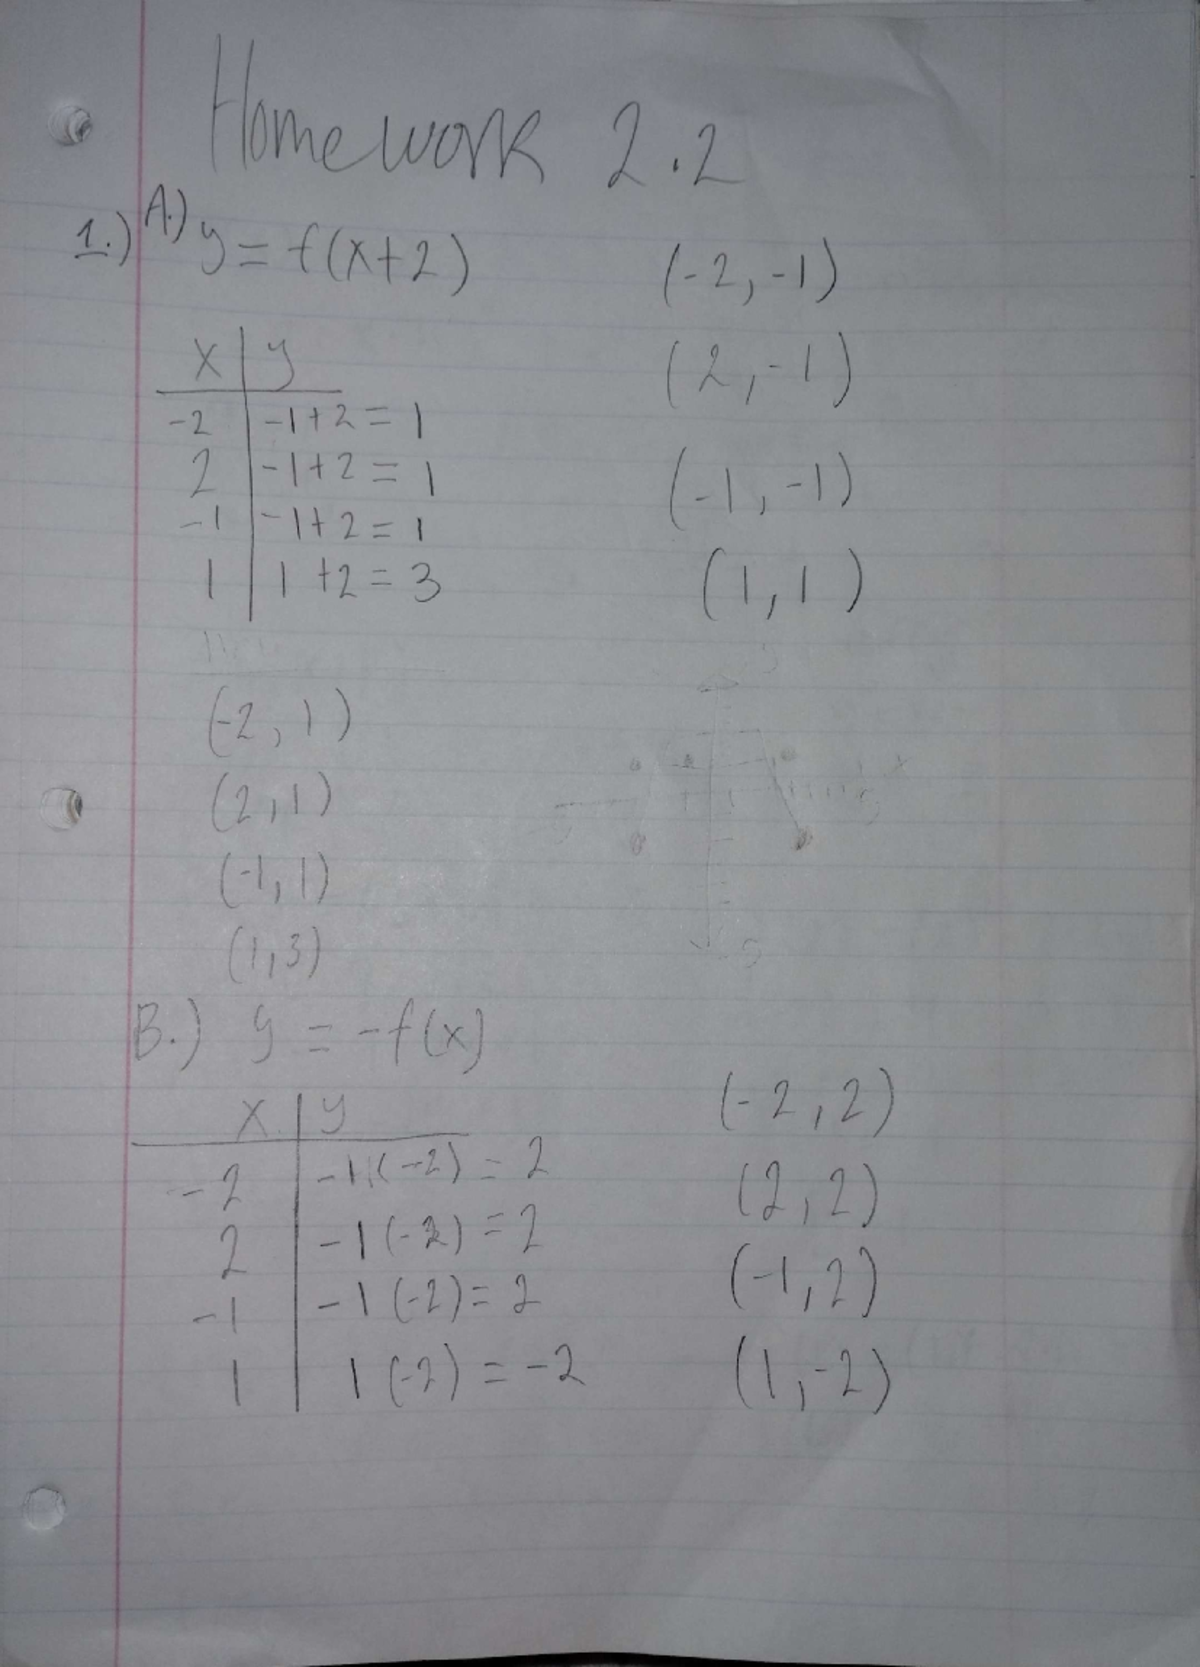 Homework 2.2
1.) A.) y = f(x+2) (-2, -1)
x | y (2, -1)
-2 | -1+2 = 1
2 | -1+2 = 1 (-1, -1)
-1 | -1+2 = 1
1 | 1 +2 = 3 (1, 1)
(-2, 1)
(2, 1)
(-1, 1)
(1, 3)
B.) y = -f(x)
x | y (-2, 2)
-2 | -1(-2) = 2 (2, 2)
2 | -1(-2) = 2
-1 | -1(-2) = 2 (-1, 2)
1 | 1(-2) = -2 (1, -2)